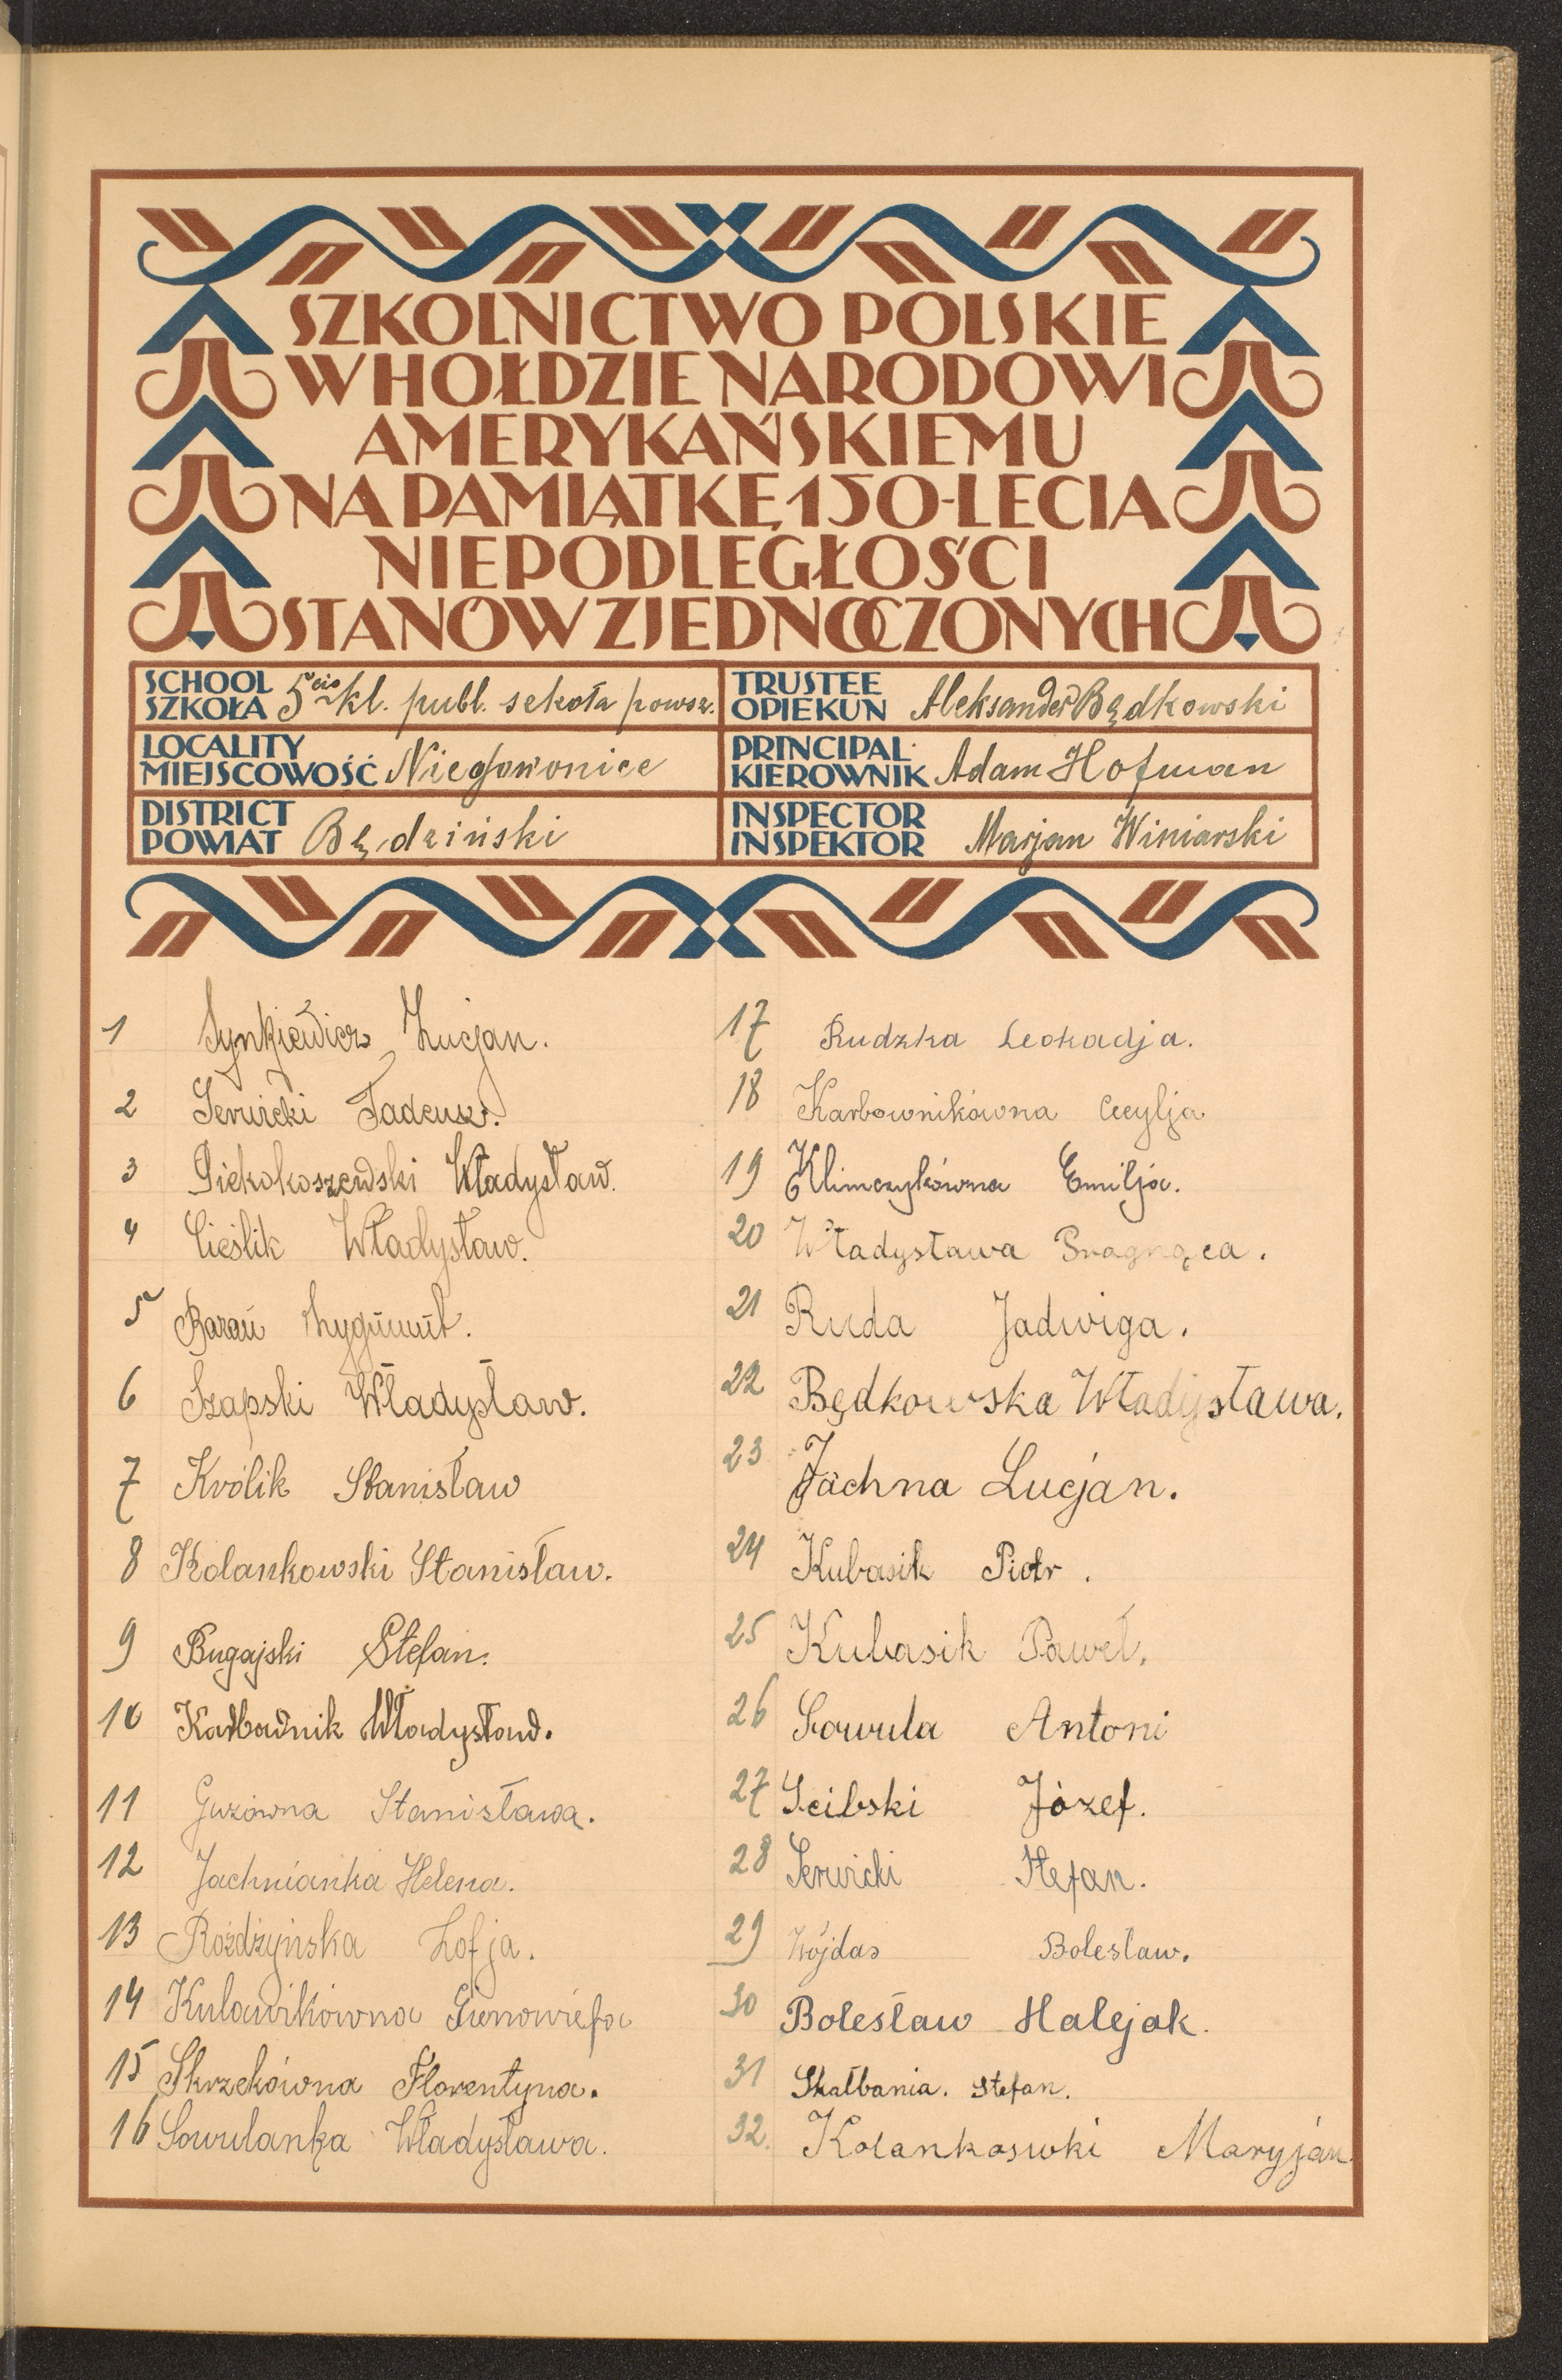 SZKOLNICTWO POLSKIE
W HOŁDZIE NARODOWI
AMERYKAŃSKIEMU
NA PAMIĄTKĘ 150-LECIA
NIEPODLEGŁOŚCI
STANÓW ZJEDNOCZONYCH
SCHOOL
SZKOŁA 5cio kl. publ. szkoła powsz.
TRUSTEE
OPIEKUN Aleksander Będkowski
LOCALITY
MIEJSCOWOŚĆ Niegowonice
PRINCIPAL
KIEROWNIK Adam Hofman
DISTRICT
POWIAT Będziński
INSPECTOR
INSPEKTOR Marjan Winiarski
1 Synkiewicz Lucjan.
2 Serwicki Tadeusz.
3 Piekoszewski Władysław.
4 Cieślik Władysław.
5 Baran Zygmunt.
6 Szapski Władysław.
7 Królik Stanisław
8 Kolankowski Stanisław.
9 Bugajski Stefan.
10 Karbownik Władysław.
11 Guzówna Stanisława.
12 Jachnianka Helena.
13 Rożdżyńska Zofja.
14 Kulawikówna Gienowiefa
15 Skrzekówna Florentyna.
16 Sowulanka Władysława.
17 Rudzka Leokadja.
18 Karbownikówna Cecylja
19 Klimczykówna Emilja.
20 Władysława Pragnąca.
21 Ruda Jadwiga.
22 Będkowska Władysława.
23 Jachna Lucjan.
24 Kubasik Piotr.
25 Kubasik Paweł.
26 Sowula Antoni
27 Scibski Józef.
28 Serwicki Stefan.
29 Wójdas Bolesław.
30 Bolesław Halejak.
31 Skałbania. Stefan.
32. Kolankoswki Maryjan.